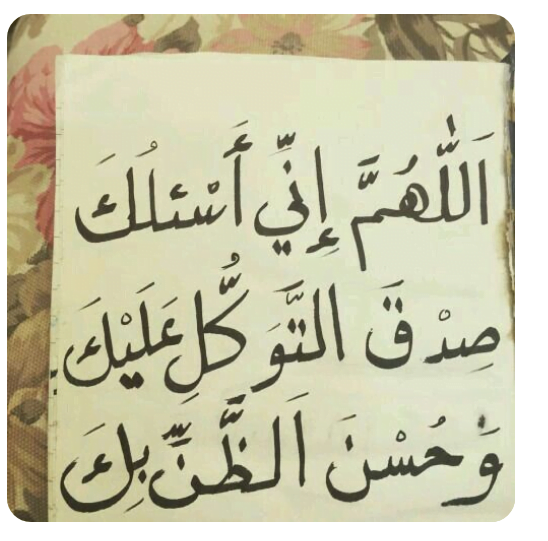 اَللّٰهُمَّ إِنِّي أَسْئَلُكَ
صِدْقَ التَّوَكُّلِ عَلَيْكَ
وَحُسْنَ اَلظَّنِّ بِكَ